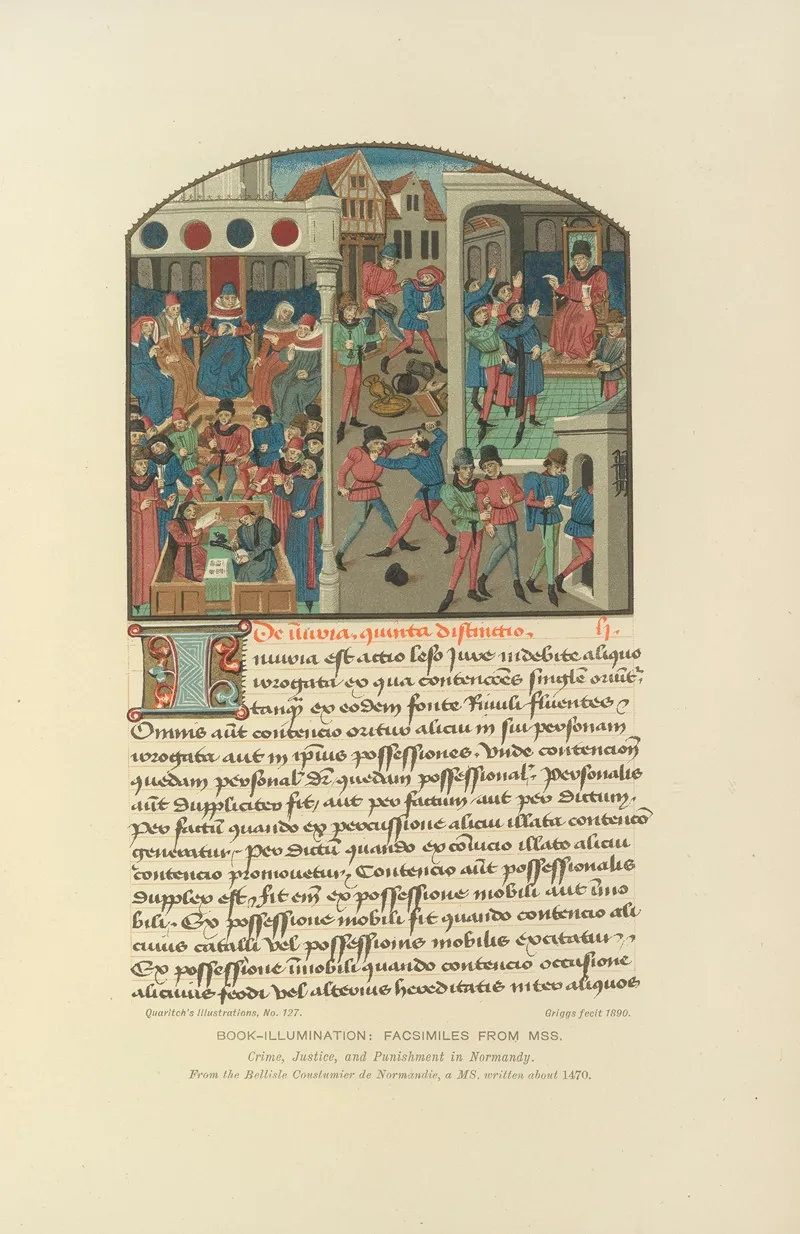 De iniuria, quinta distinctio.
Iniuria est actio leso Jure indebite aliquo
irrogata ex qua contencões singl'e oriũt',
tanq̃ ex eodem fonte Riuuli fluentes
Omnis aũt contencio oritur alicui in sui personam
irrogata aut in ip̃ius possessiones. Vnde contencion̄
quedam personal' dr̃ quedam possessional'. Personalis
aũt duppliciter fit, aut per factum aut per dictum.
Per factũ quando ex percussione alicui illata contencio
generatur. Per dictũ quando ex cõuicio illato alicui
contencio promouetur, Contencio aũt possessionalis
dupplex est, fit em̃ ex possessione mobili aut imo
bili. Ex possessione mobili fit quando contencio ali
cuius catalli vel possessionis mobilis excitatur,
Ex possessione ĩmobili quando contencio occasione
alicuius feodi vel alterius hereditatis inter aliquos
Quaritch's Illustrations, No. 127.
Griggs fecit 1890.
BOOK-ILLUMINATION: FACSIMILES FROM MSS.
Crime, Justice, and Punishment in Normandy.
From the Bellisle Coustumier de Normandie, a MS. written about 1470.